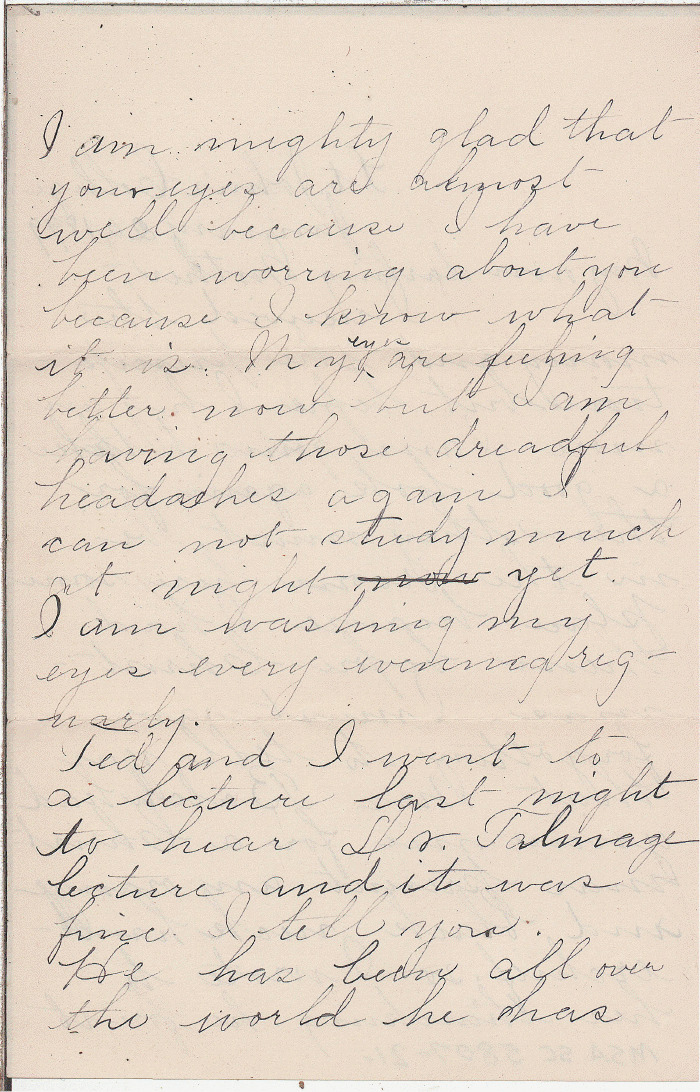 I am mighty glad that
your eyes are almost
well because I have
been worring about you
because I know what
it is. My eyes are feeling
better now but I am
having those dreadful
headaches again I
can not study much
at night now yet.
I am washing my
eyes every evening reg-
ularly.
Ted and I went to
a lecture last night
to hear Dr. Talmage
lecture and it was
fine. I tell you.
He has been all over
the world he has
MSA SC 5807-21